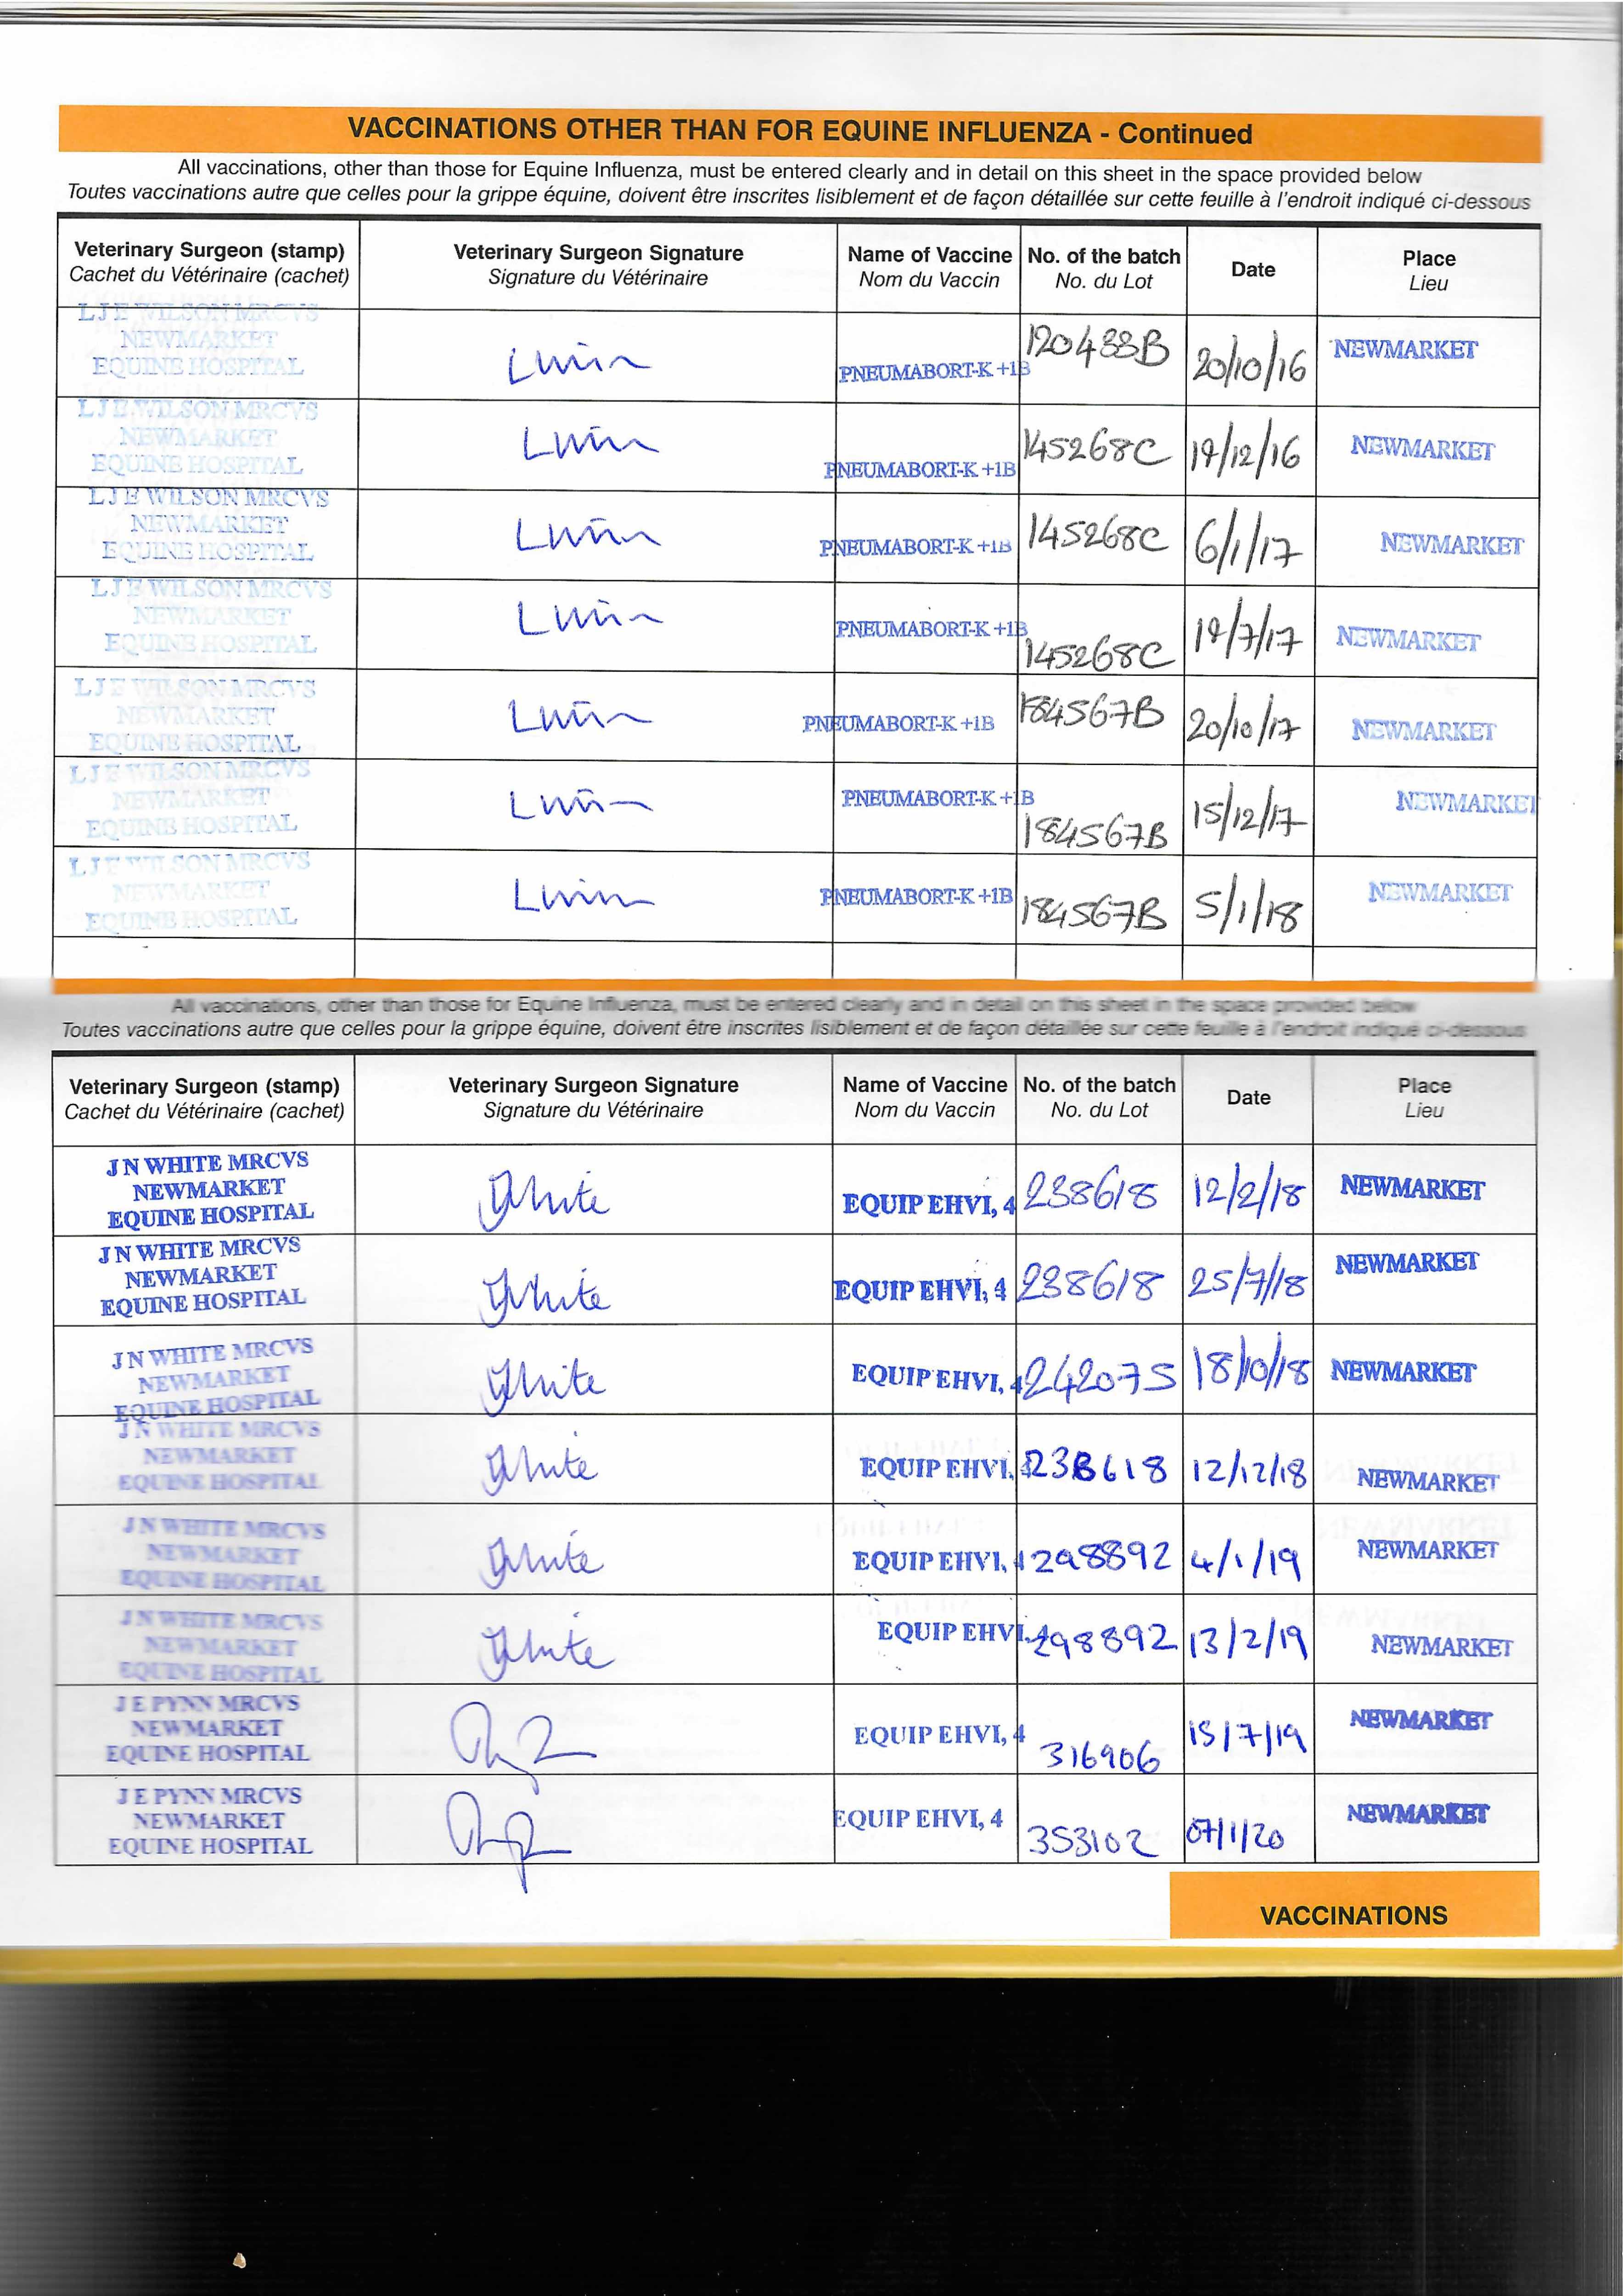 VACCINATIONS OTHER THAN FOR EQUINE INFLUENZA - Continued
All vaccinations, other than those for Equine Influenza, must be entered clearly and in detail on this sheet in the space provided below
Toutes vaccinations autre que celles pour la grippe équine, doivent être inscrites lisiblement et de façon détaillée sur cette feuille à l'endroit indiqué ci-dessous
Veterinary Surgeon (stamp) Veterinary Surgeon Signature Name of Vaccine No. of the batch Date Place
Cachet du Vétérinaire (cachet) Signature du Vétérinaire Nom du Vaccin No. du Lot Lieu
LJE WILSON MRCVS
NEWMARKET
EQUINE HOSPITAL PNEUMABORT-K +1B 120433B 20/10/16 NEWMARKET
LJE WILSON MRCVS
NEWMARKET
EQUINE HOSPITAL PNEUMABORT-K +1B 145268C /12/16 NEWMARKET
LJE WILSON MRCVS
NEWMARKET
EQUINE HOSPITAL PNEUMABORT-K +1B 145268C 6/1/17 NEWMARKET
LJE WILSON MRCVS
NEWMARKET
EQUINE HOSPITAL PNEUMABORT-K +1B 145268C /7/17 NEWMARKET
LJE WILSON MRCVS
NEWMARKET
EQUINE HOSPITAL PNEUMABORT-K +1B 184567B 20/10/17 NEWMARKET
LJE WILSON MRCVS
NEWMARKET
EQUINE HOSPITAL PNEUMABORT-K +1B 184567B 15/12/17 NEWMARKET
LJE WILSON MRCVS
NEWMARKET
EQUINE HOSPITAL PNEUMABORT-K +1B 184567B 5/1/18 NEWMARKET
All vaccinations, other than those for Equine Influenza, must be entered clearly and in detail on this sheet in the space provided below
Toutes vaccinations autre que celles pour la grippe équine, doivent être inscrites lisiblement et de façon détaillée sur cette feuille à l'endroit indiqué ci-dessous
Veterinary Surgeon (stamp) Veterinary Surgeon Signature Name of Vaccine No. of the batch Date Place
Cachet du Vétérinaire (cachet) Signature du Vétérinaire Nom du Vaccin No. du Lot Lieu
J N WHITE MRCVS
NEWMARKET
EQUINE HOSPITAL JWhite EQUIP EHV1, 4 238618 12/2/18 NEWMARKET
J N WHITE MRCVS
NEWMARKET
EQUINE HOSPITAL JWhite EQUIP EHV1, 4 238618 25/7/18 NEWMARKET
J N WHITE MRCVS
NEWMARKET
EQUINE HOSPITAL JWhite EQUIP EHV1, 4 242075 18/10/18 NEWMARKET
J N WHITE MRCVS
NEWMARKET
EQUINE HOSPITAL JWhite EQUIP EHV1, 4 238618 12/12/18 NEWMARKET
J N WHITE MRCVS
NEWMARKET
EQUINE HOSPITAL JWhite EQUIP EHV1, 4 298892 4/1/19 NEWMARKET
J N WHITE MRCVS
NEWMARKET
EQUINE HOSPITAL JWhite EQUIP EHV1, 4 298892 13/2/19 NEWMARKET
J E PYNN MRCVS
NEWMARKET
EQUINE HOSPITAL EQUIP EHV1, 4 316906 15/7/19 NEWMARKET
J E PYNN MRCVS
NEWMARKET
EQUINE HOSPITAL EQUIP EHV1, 4 353102 07/1/20 NEWMARKET
VACCINATIONS